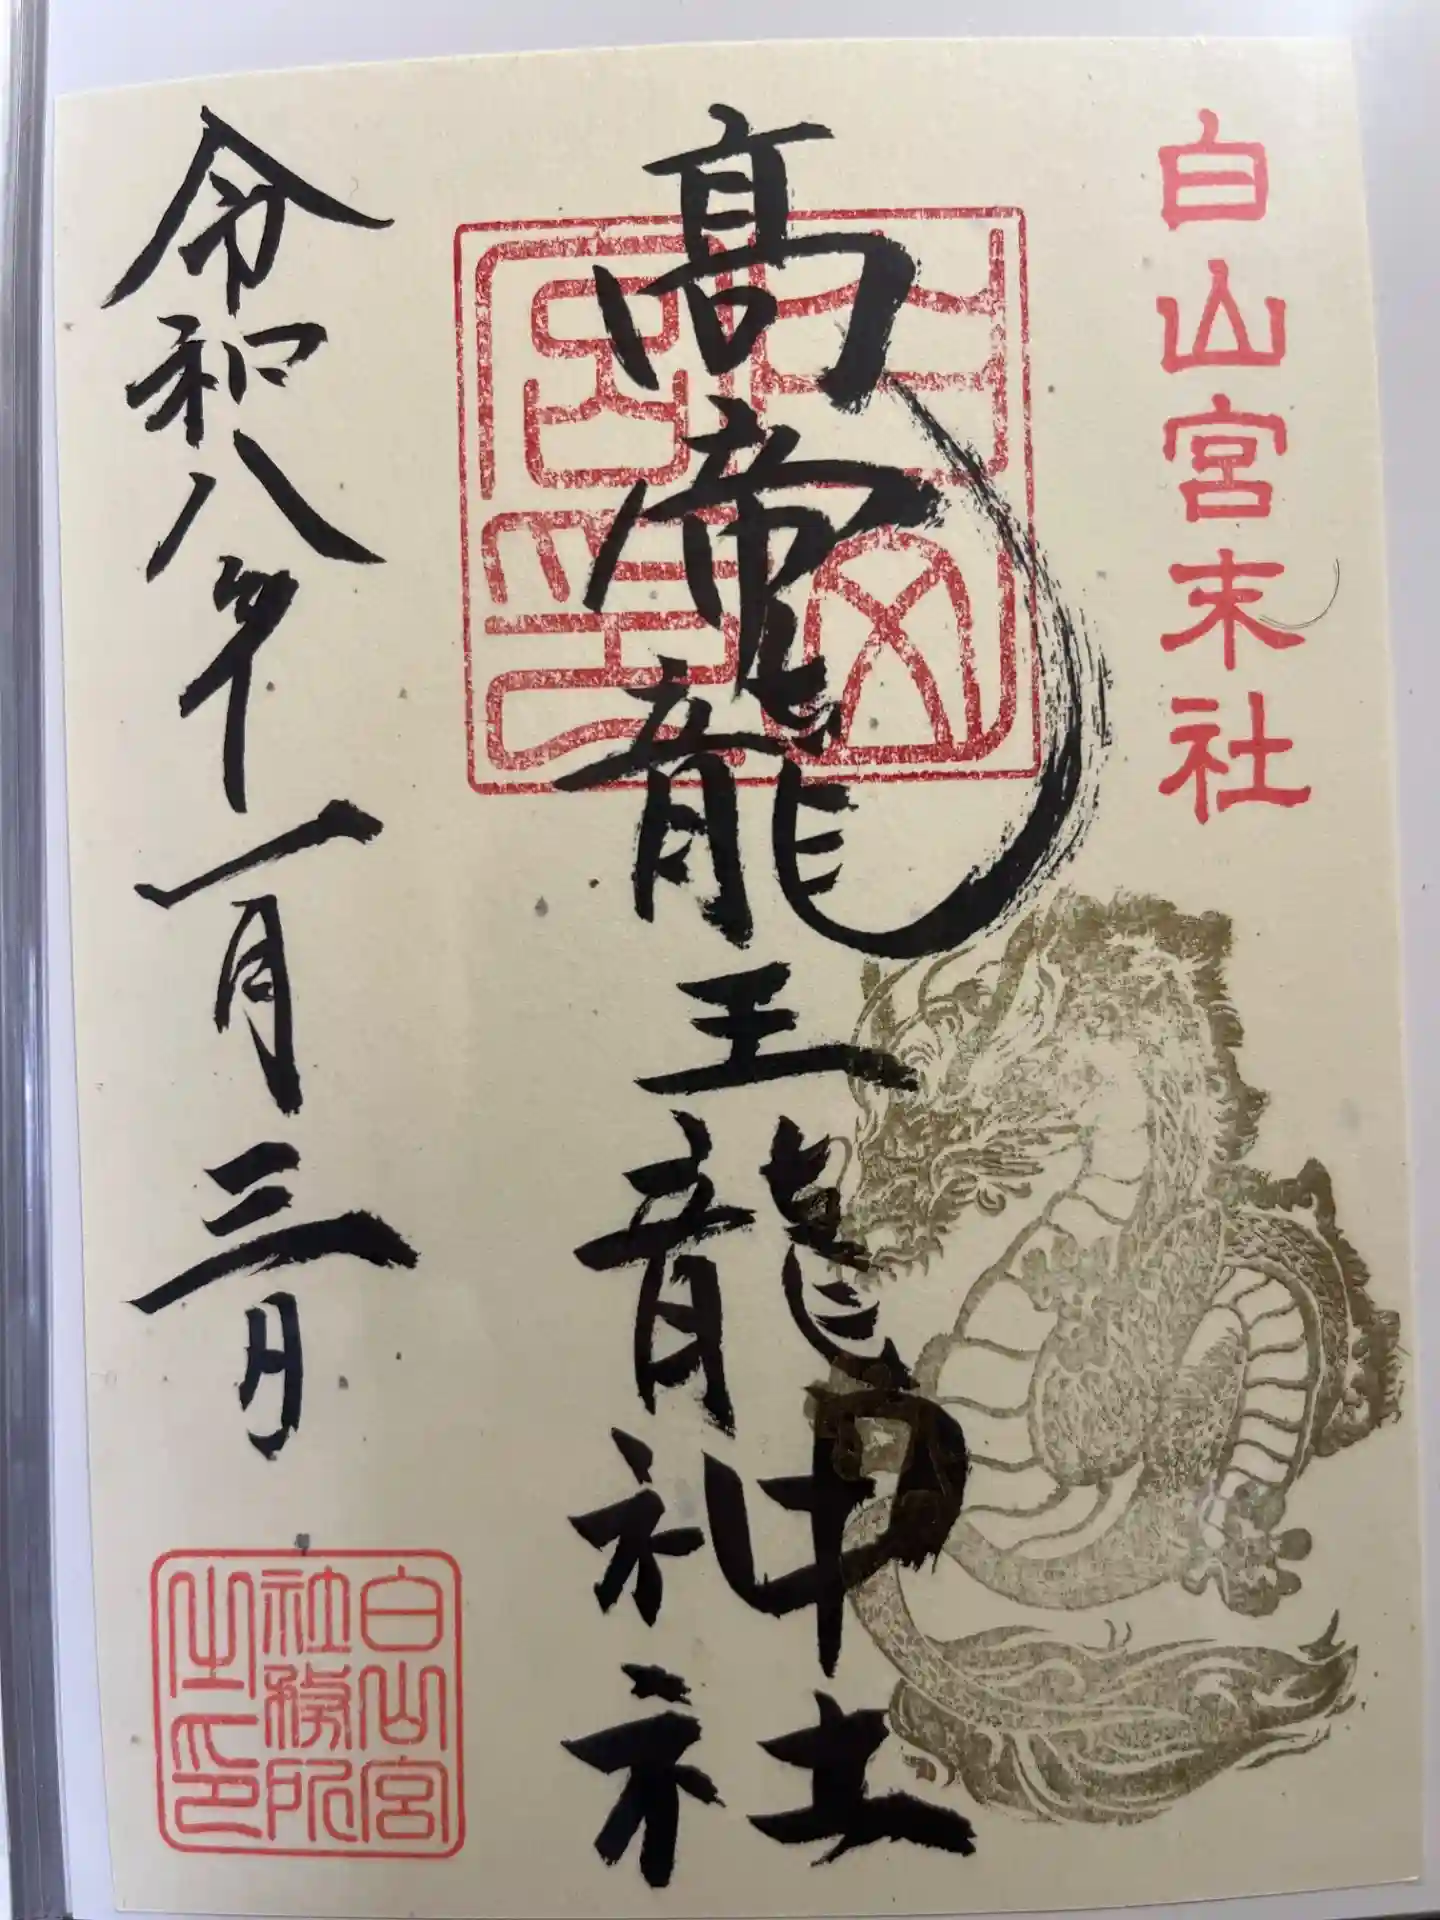 白山宮末社
髙帝龍王龍神社
令和八年一月三日
白山宮
社務所
之印